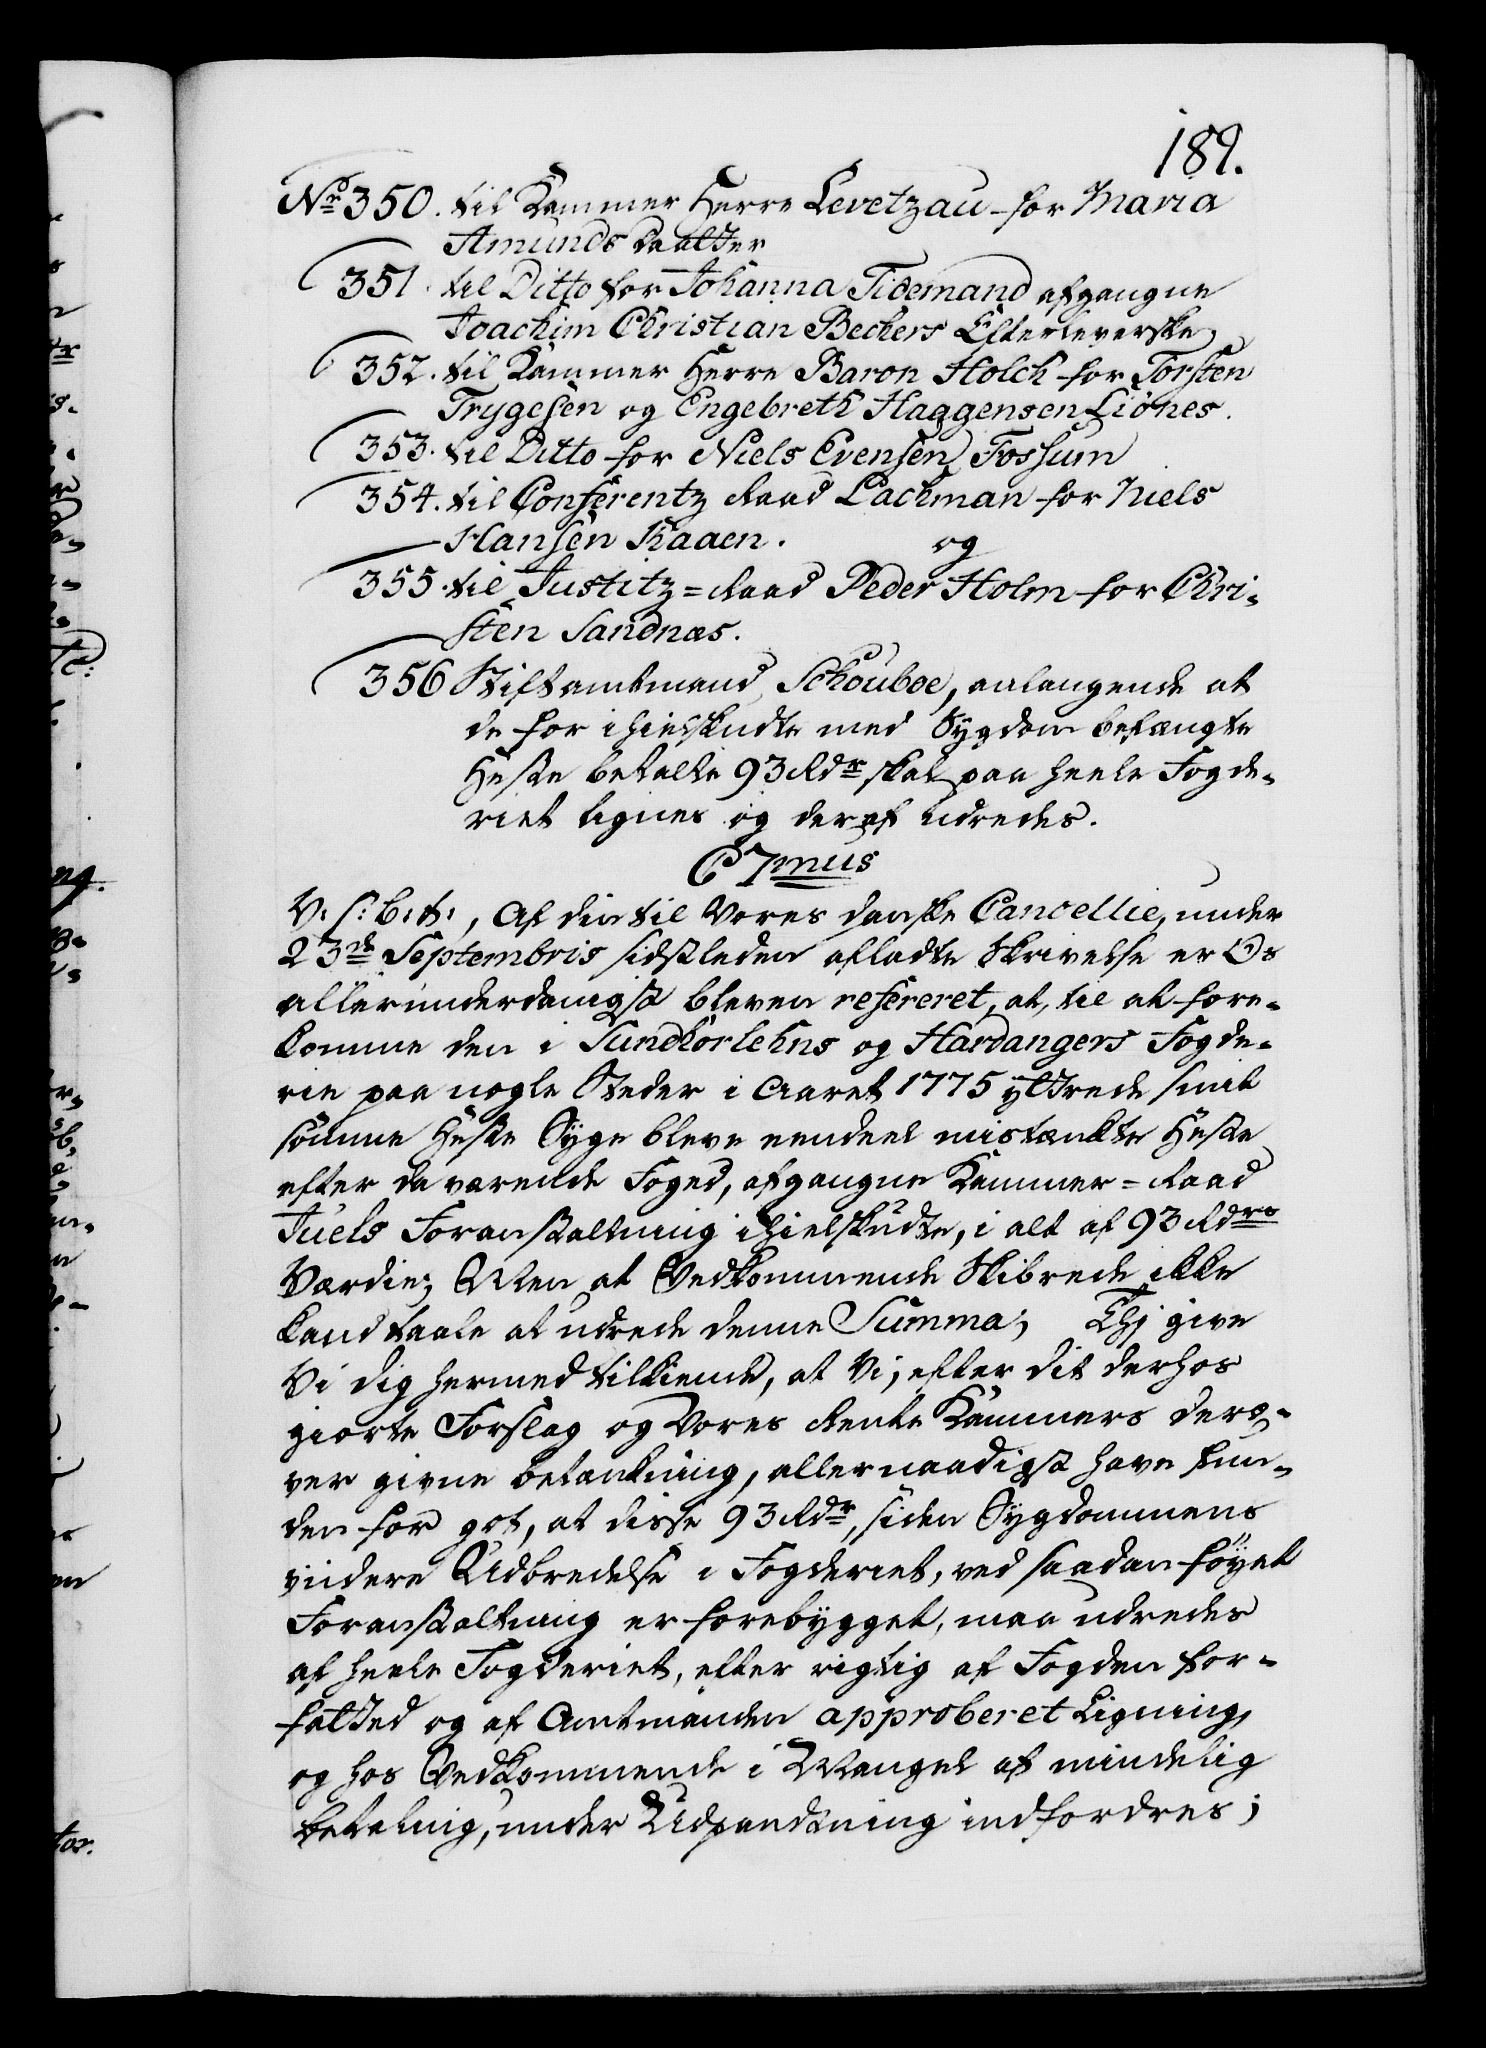 189.
No 350. til Kammer Herre Levetzau for Maria
Amunds Daatter
351. til Ditto for Johanna Tidemand afgangne
Joachim Christian Beckers Efterleverske
352. til Kammer Herre Baron Holck for Torsten
Trygesen og Engebreth Haggensen Liones.
353. til Ditto for Niels Evensen Fossum
354. til Conferentz Raad Lachman for Niels
Hansen Kaaen. og
355. til Justitz-Raad Peder Holm for Chri-
sten Sandnæs.
356 Stiftamtmand Schouboe, anlangende at
de for ihielskudte med Sygdom befængte
Heste betalte 93 Rdr skal paa heele Fogde-
riet lignes og deraf udredes.
C 7mus
V: s: b: t:, Af din til Vores danske Cancellie, under
23de Septembris sidstleden afladte Skrivelse er Os
allerunderdanigst bleven refereret, at, til at fore-
komme den i Sundhorlehns og Hardangers Fogde-
rie paa nogle Steder i Aaret 1775 yttrede smit
somme Heste Syge bleve eendeel mistænkte Heste
efter da værende Foged, afgangne Kammer-Raad
Juels Foranstaltning ihielskudte, i alt af 93 Rdrs
Værdie; Men at Vedkommende Skibrede ikke
kand taale at udrede denne Summa; Thi give
Vi dig hermed tilkiende, at Vi, efter dit derhos
giorte Forslag og Vores Rente Kammers dero-
ver givne betænkning, allernaadigst have fun-
den for got, at disse 93 Rdr, siden Sygdommens
viidere Udbredelse i Fogderiet, ved saadan föyet
Foranstaltning er forebygget, maa udredes
af heele Fogderiet, efter rigtig af Fogden for-
fatted og af Amtmanden approberet Ligning,
og hos Vedkommende i Mangel af mindelig
betaling, under Udpandtning indfordres;